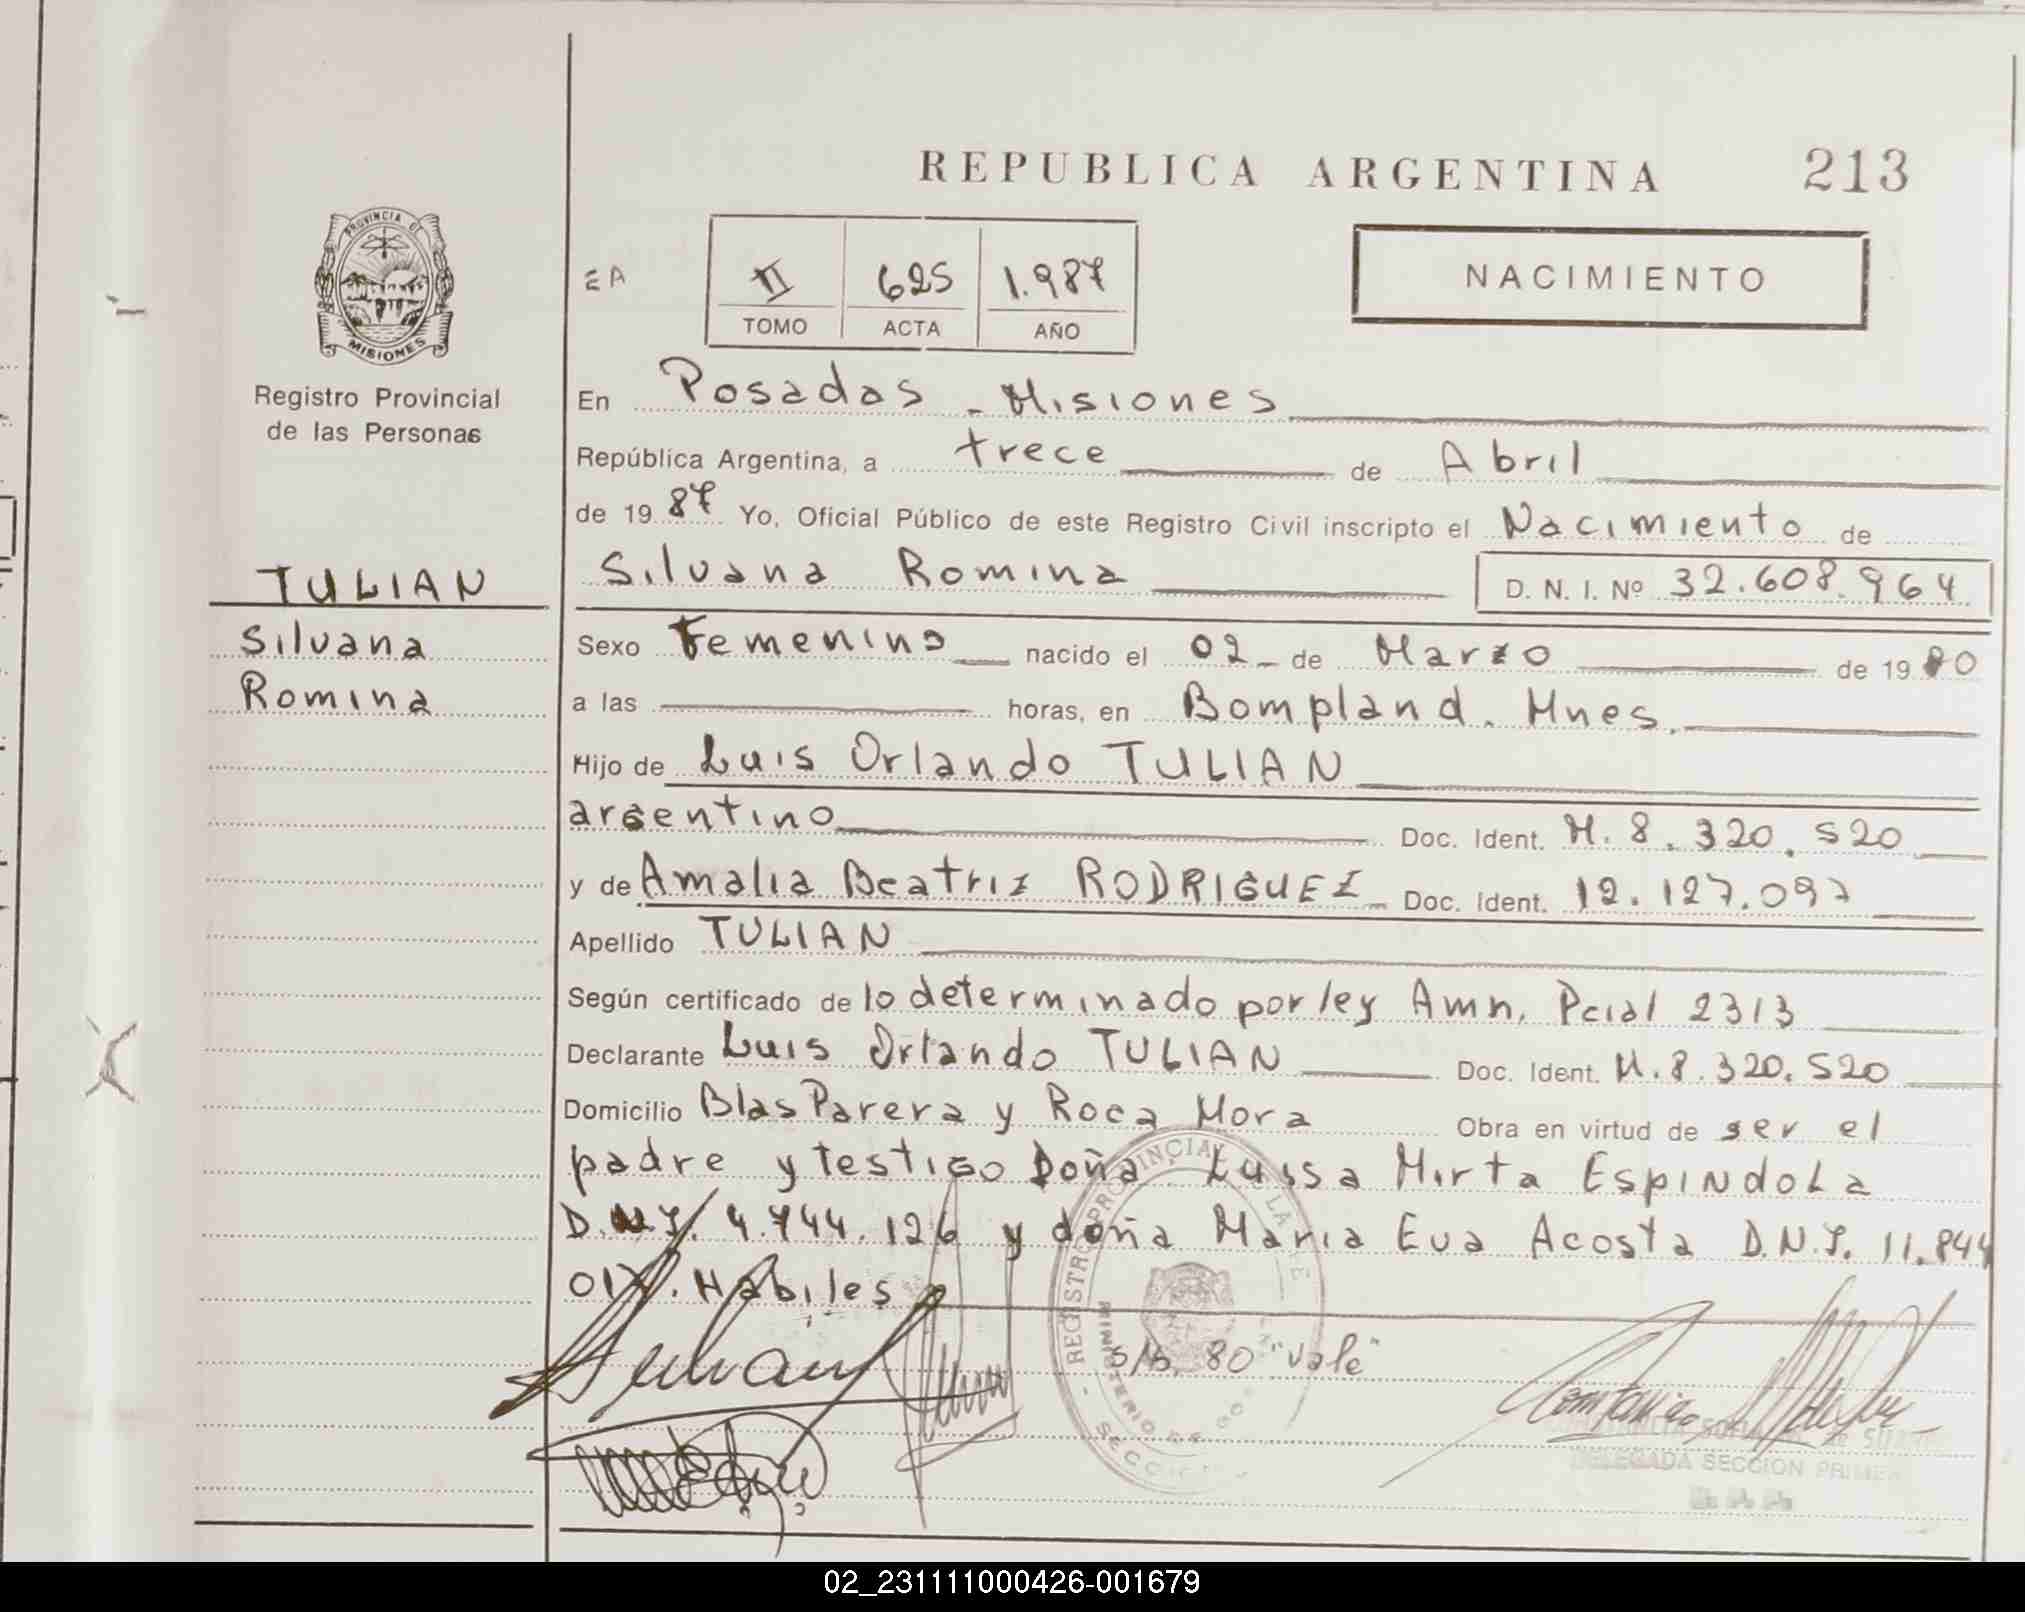 REPUBLICA ARGENTINA 213
PROVINCIA DE
MISIONES
Registro Provincial
de las Personas
EA
II 625 1.987
TOMO ACTA AÑO
NACIMIENTO
En Posadas - Misiones
República Argentina, a trece de Abril
de 1987 Yo, Oficial Público de este Registro Civil inscripto el Nacimiento de
TULIAN
Silvana
Romina
Silvana Romina D. N. I. Nº 32.608.964
Sexo Femenino nacido el 02 - de Marzo de 1980
a las horas, en Bompland. Mnes.
Hijo de Luis Orlando TULIAN
argentino Doc. Ident. M. 8.320.520
y de Amalia Beatriz RODRIGUEZ Doc. Ident. 12.127.097
Apellido TULIAN
Según certificado de lo determinado por ley Amn. Pcial 2313
Declarante Luis Orlando TULIAN Doc. Ident. M.8.320.520
Domicilio Blas Parera y Roca Mora Obra en virtud de ser el
padre y testigo Doña Luisa Mirta EspINdoLa
D.N.I. 4.744.126 y doña Maria Eva Acosta D.N.I. 11.844
017. Habiles
s/b. 80 "vale"
REGISTRO PROVINCIAL DE LA
MINISTERIO DE GO
SECCION
DELEGADA SECCION PRIMERA
02_231111000426-001679